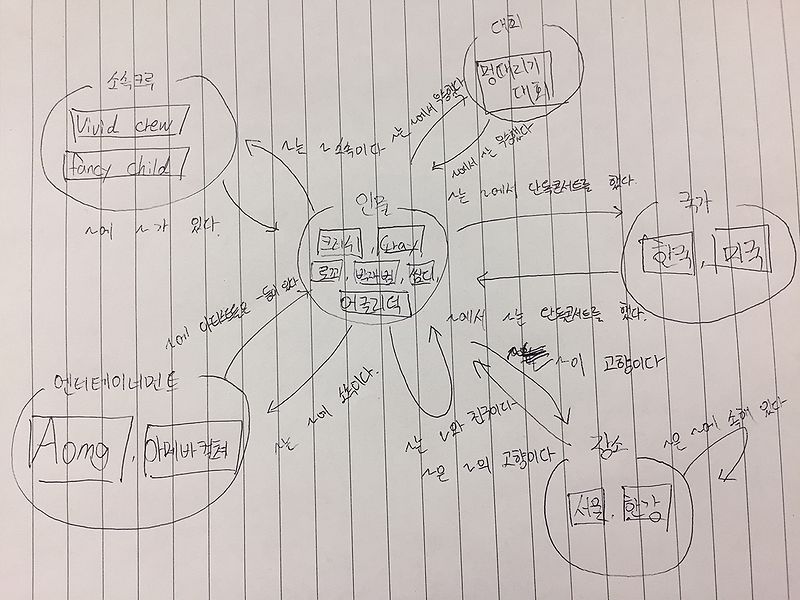 대회
멍때리기
대회
소속크루
Vivid crew
fancy child
~는 ~소속이다
~는 ~에서 우승했다
~에서 ~는 우승했다
~에 ~가 있다.
인물
크러쉬, Gray,
로꼬, 박재범, 쌈디,
어글리덕
~는 ~에서 단독콘서트를 했다.
국가
한국, 미국
~에서 ~는 단독콘서트를 했다.
~에 아티스트는 ~들이 있다
엔터테이너먼트
Aomg, 아메바컬쳐
~는 ~에 소속이다.
~는 ~와 친구이다
~은 ~의 고향이다
~이 고향이다
장소
서울, 한강
~은 ~에 속해 있다